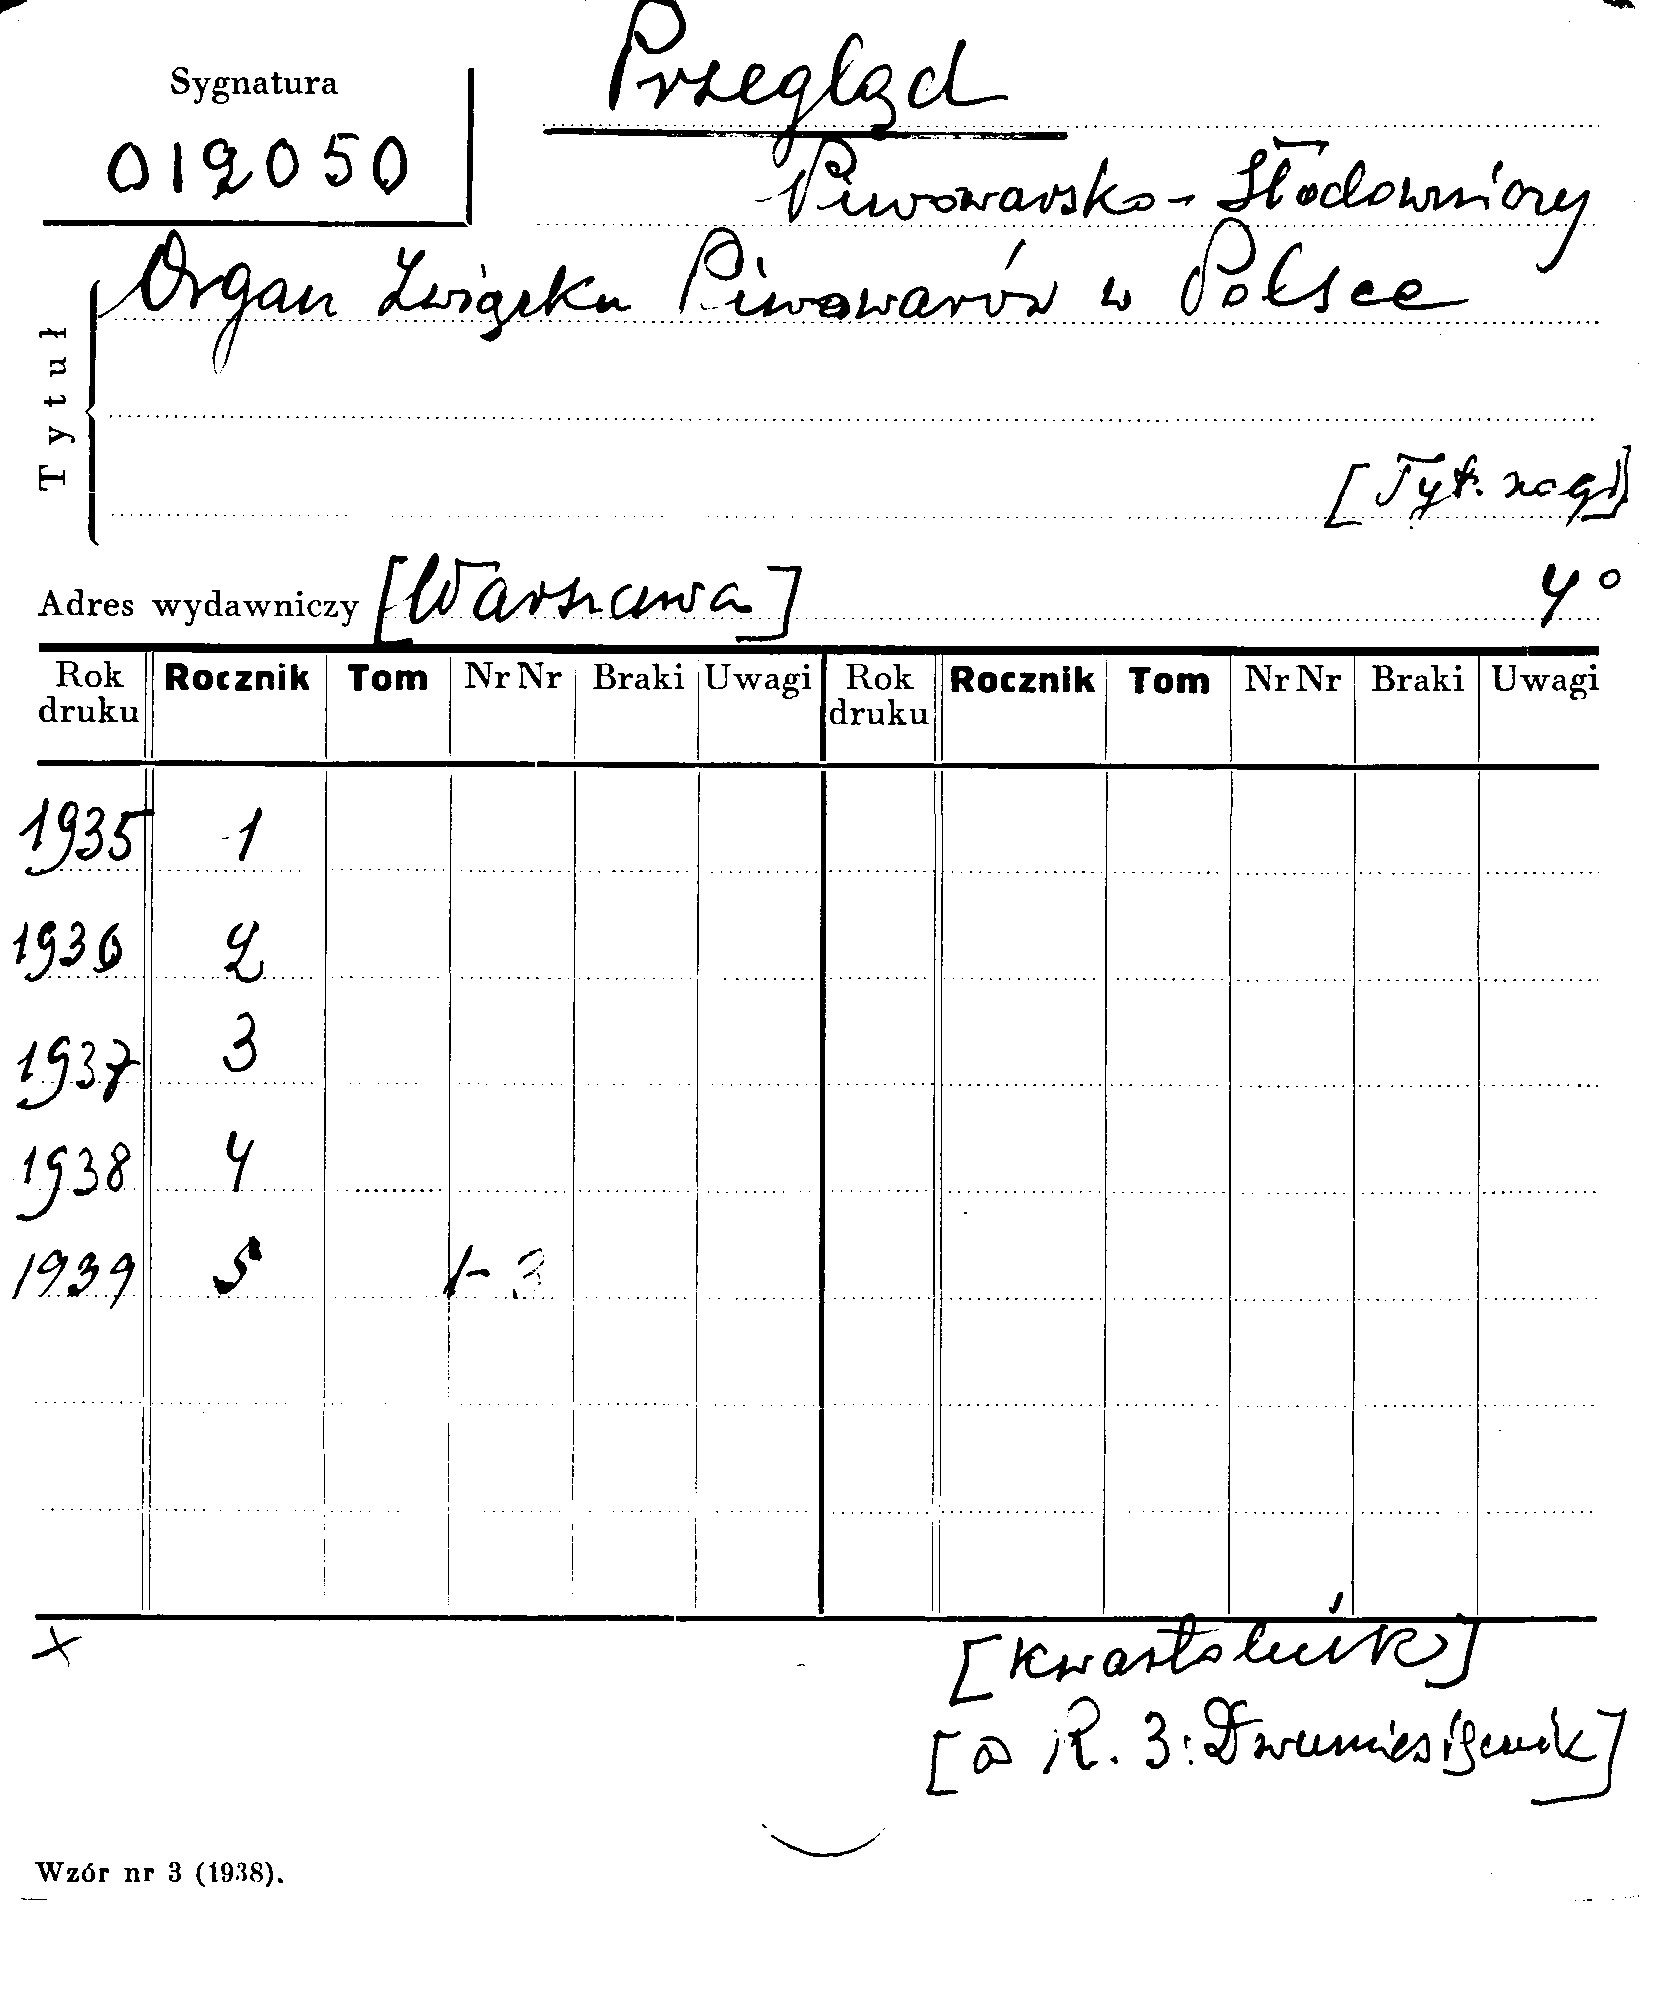 Sygnatura
012050
Przegląd
Piwowarsko-Słodowniczy
Organ Związku Piwowarów w Polsce
Tytuł
[Tyt. nagł]
Adres wydawniczy [Warszawa] 4°
Rok druku Rocznik Tom Nr Nr Braki Uwagi Rok druku Rocznik Tom Nr Nr Braki Uwagi
1935 1
1936 2
1937 3
1938 4
1939 5 1-3
x
[Kwartalnik]
[od R. 3: Dwumiesięcznik]
Wzór nr 3 (1938).